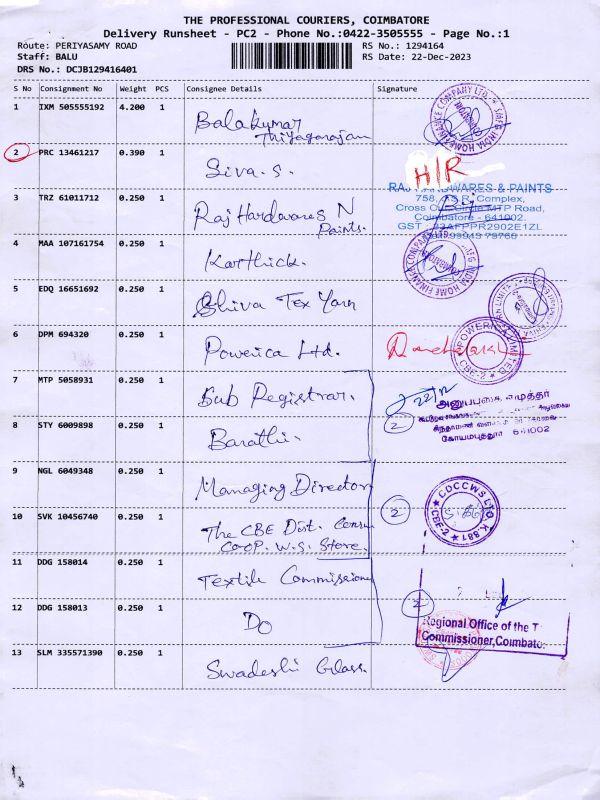 THE PROFESSIONAL COURIERS, COIMBATORE
Delivery Runsheet - PC2 - Phone No.:0422-3505555 - Page No.:1
Route: PERIYASAMY ROAD
RS No.: 1294164
Staff: BALU
RS Date: 22-Dec-2023
DRS No.: DCJB129416401
S No Consignment No Weight PCS Consignee Details Signature
1 IXM 505555192 4.200 1 Balakumar
Thiyagarajan
2 PRC 13461217 0.390 1 Siva.S. H/R
3 TRZ 61011712 0.250 1 Raj Hardwares N
Paints.
RAJ HARDWARES & PAINTS
Complex,
MTP Road,
Coimbatore - 641002.
4 MAA 107161754 0.250 1 Karthick.
5 EDQ 16651692 0.250 1 Shiva Tex Yarn
6 DPM 694320 0.250 1 Powerica Ltd.
7 MTP 5058931 0.250 1 Sub Registrar. 22/12
8 STY 6009898 0.250 1 Barathi. 2
கோயமுத்தூர் 641002
9 NGL 6049348 0.250 1 Managing Director
10 SVK 10456740 0.250 1 The CBE Dist. Consu 2
CO.OP. W.S. Store.
CDCCWS LTD. K.881
CBE-2
11 DDG 158014 0.250 1 Textile Commissione
12 DDG 158013 0.250 1 Do 2
Regional Office of the T
Commissioner, Coimbato
13 SLM 335571390 0.250 1 Swadeshi Glass.